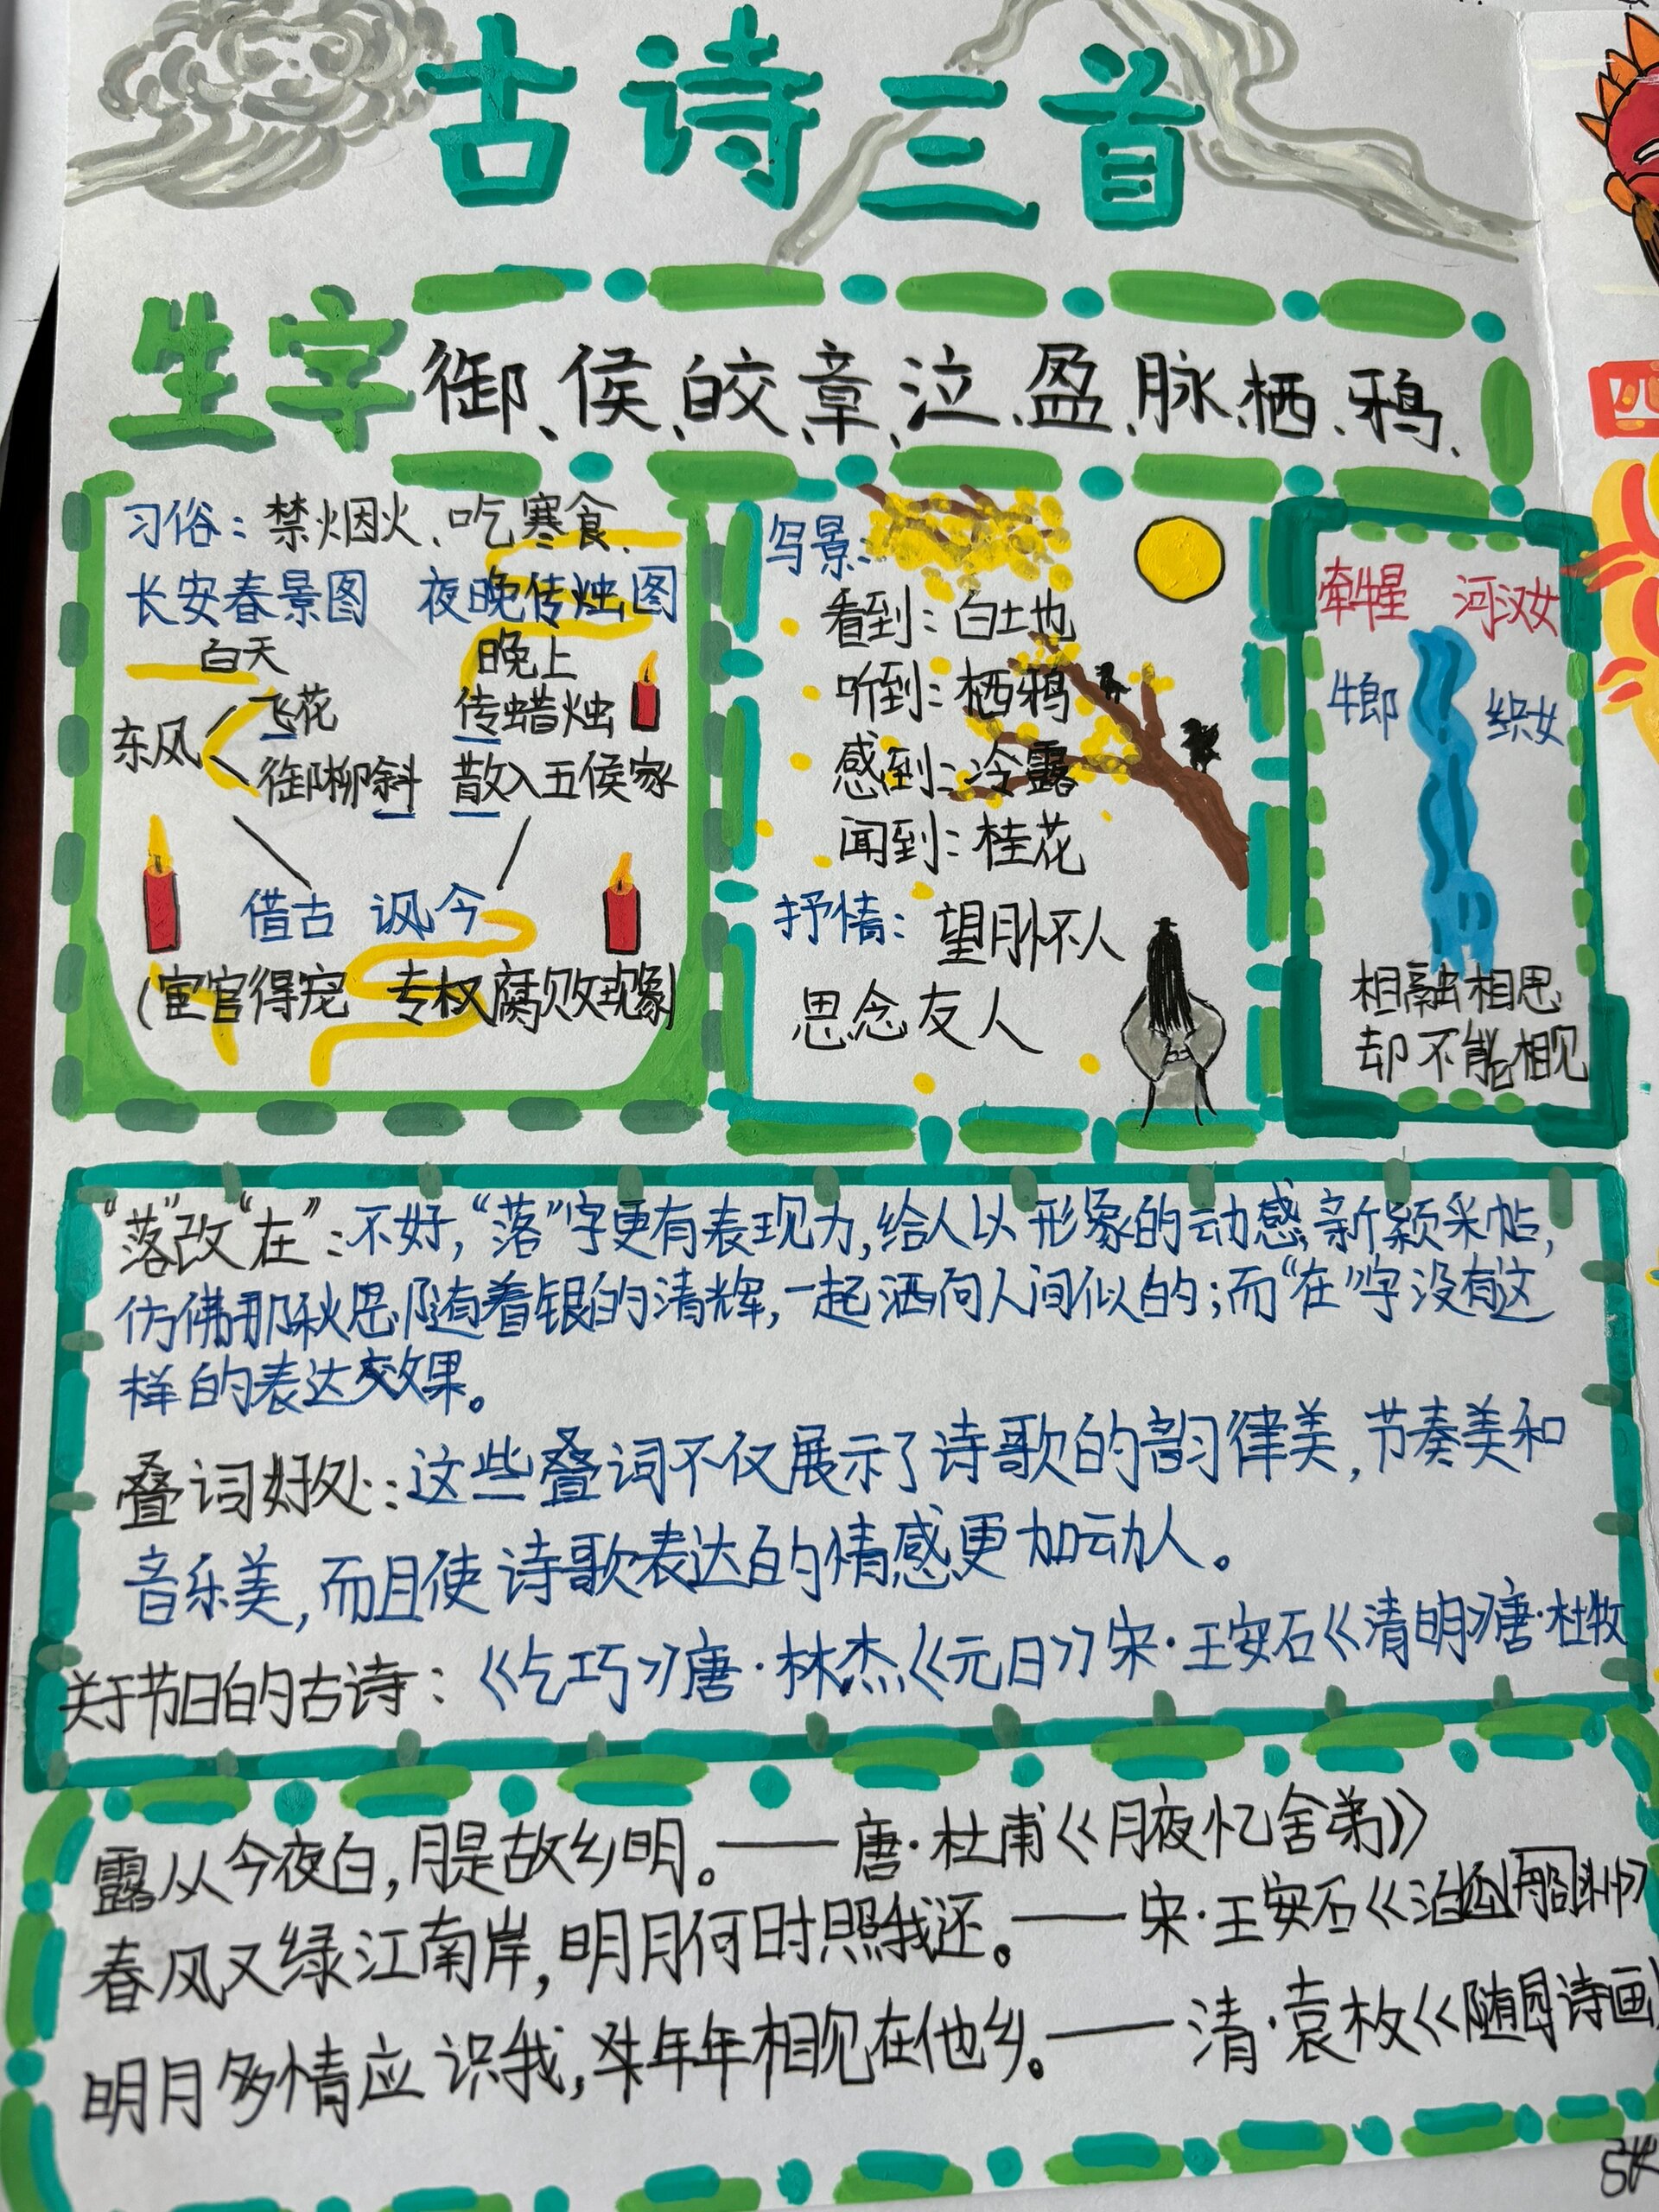 古诗三首
生字 御、侯、皎、章、泣、盈、脉、栖、鸦、
习俗：禁烟火、吃寒食、
长安春景图 夜晚传烛图
白天 晚上
东风 飞花 传蜡烛
御柳斜 散入五侯家
借古 讽今
(宦官得宠 专权腐败现象)
写景：
看到：白土地
听到：栖鸦
感到：冷露
闻到：桂花
抒情：望月怀人
思念友人
牵牛星 河汉女
牛郎 织女
相融相思
却不能相见
“落”改“在”：不好，“落”字更有表现力，给人以形象的动感，新颖采帖，
仿佛那秋思随着银的清辉，一起洒向人间似的；而“在”字没有这
样的表达效果。
叠词好处：这些叠词不仅展示了诗歌的韵律美，节奏美和
音乐美，而且使诗歌表达的情感更加动人。
关于节日的古诗：《乞巧》唐·林杰《元日》宋·王安石《清明》唐·杜牧
露从今夜白，月是故乡明。——唐·杜甫《月夜忆舍弟》
春风又绿江南岸，明月何时照我还。——宋·王安石《泊船
明月多情应识我，年年相见在他乡。——清·袁枚《随园诗画
四